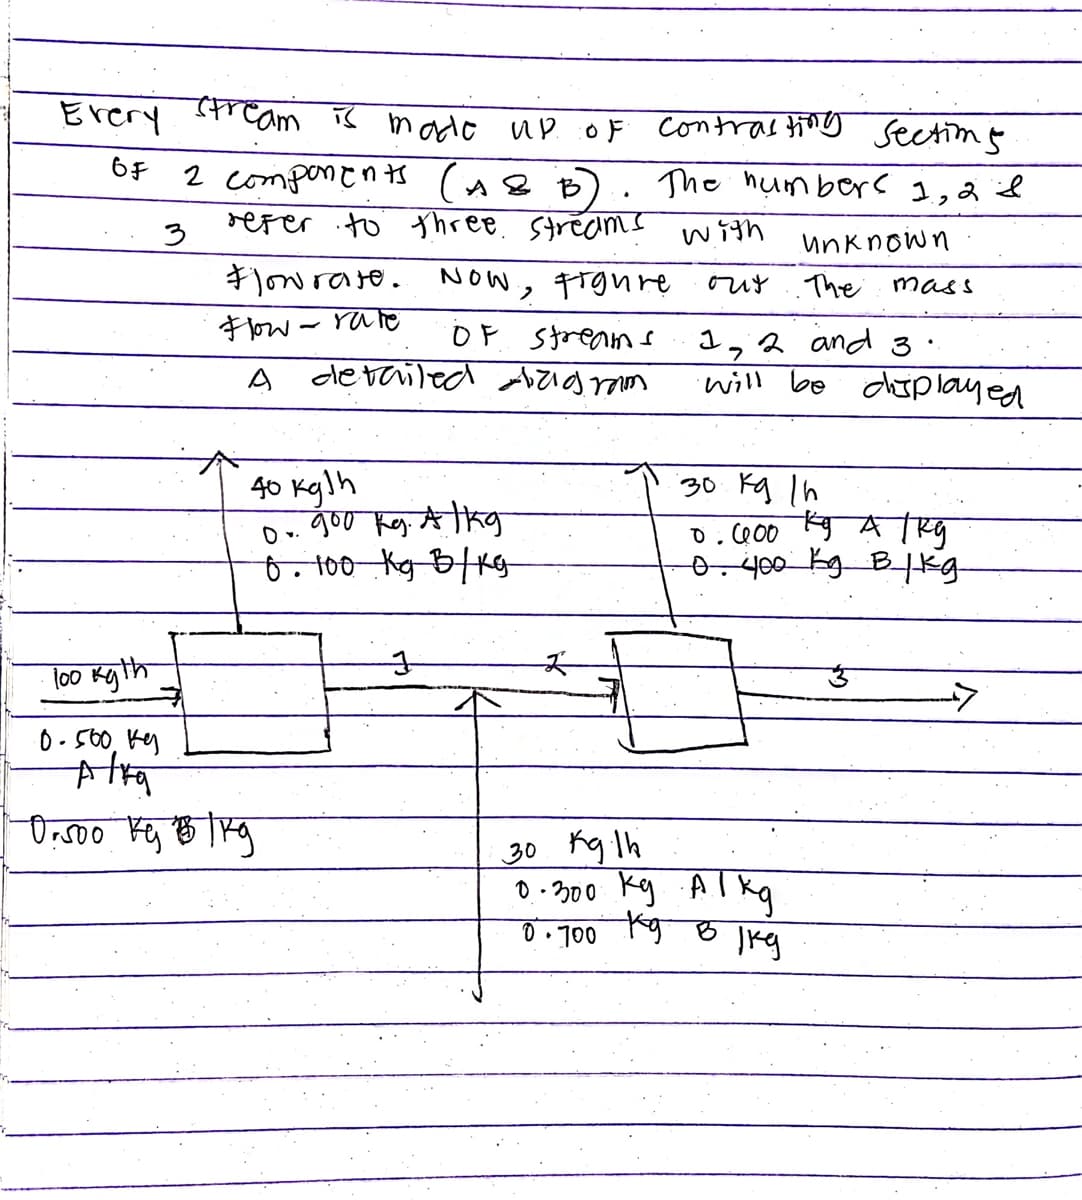 Every stream is made up of contrasting sections
of 2 components (A & B). The numbers 1, 2 &
3 refer to three streams with unknown
flowrate. Now, figure out the mass
flow-rate of streams 1, 2 and 3.
A detailed diagram will be displayed
40 kg/h
0.900 kg A/kg
0.100 kg B/kg
30 kg/h
0.600 kg A/kg
0.400 kg B/kg
100 kg/h
0.500 kg
A/kg
0.500 kg B/kg
1
2
3
30 kg/h
0.300 kg A/kg
0.700 kg B/kg